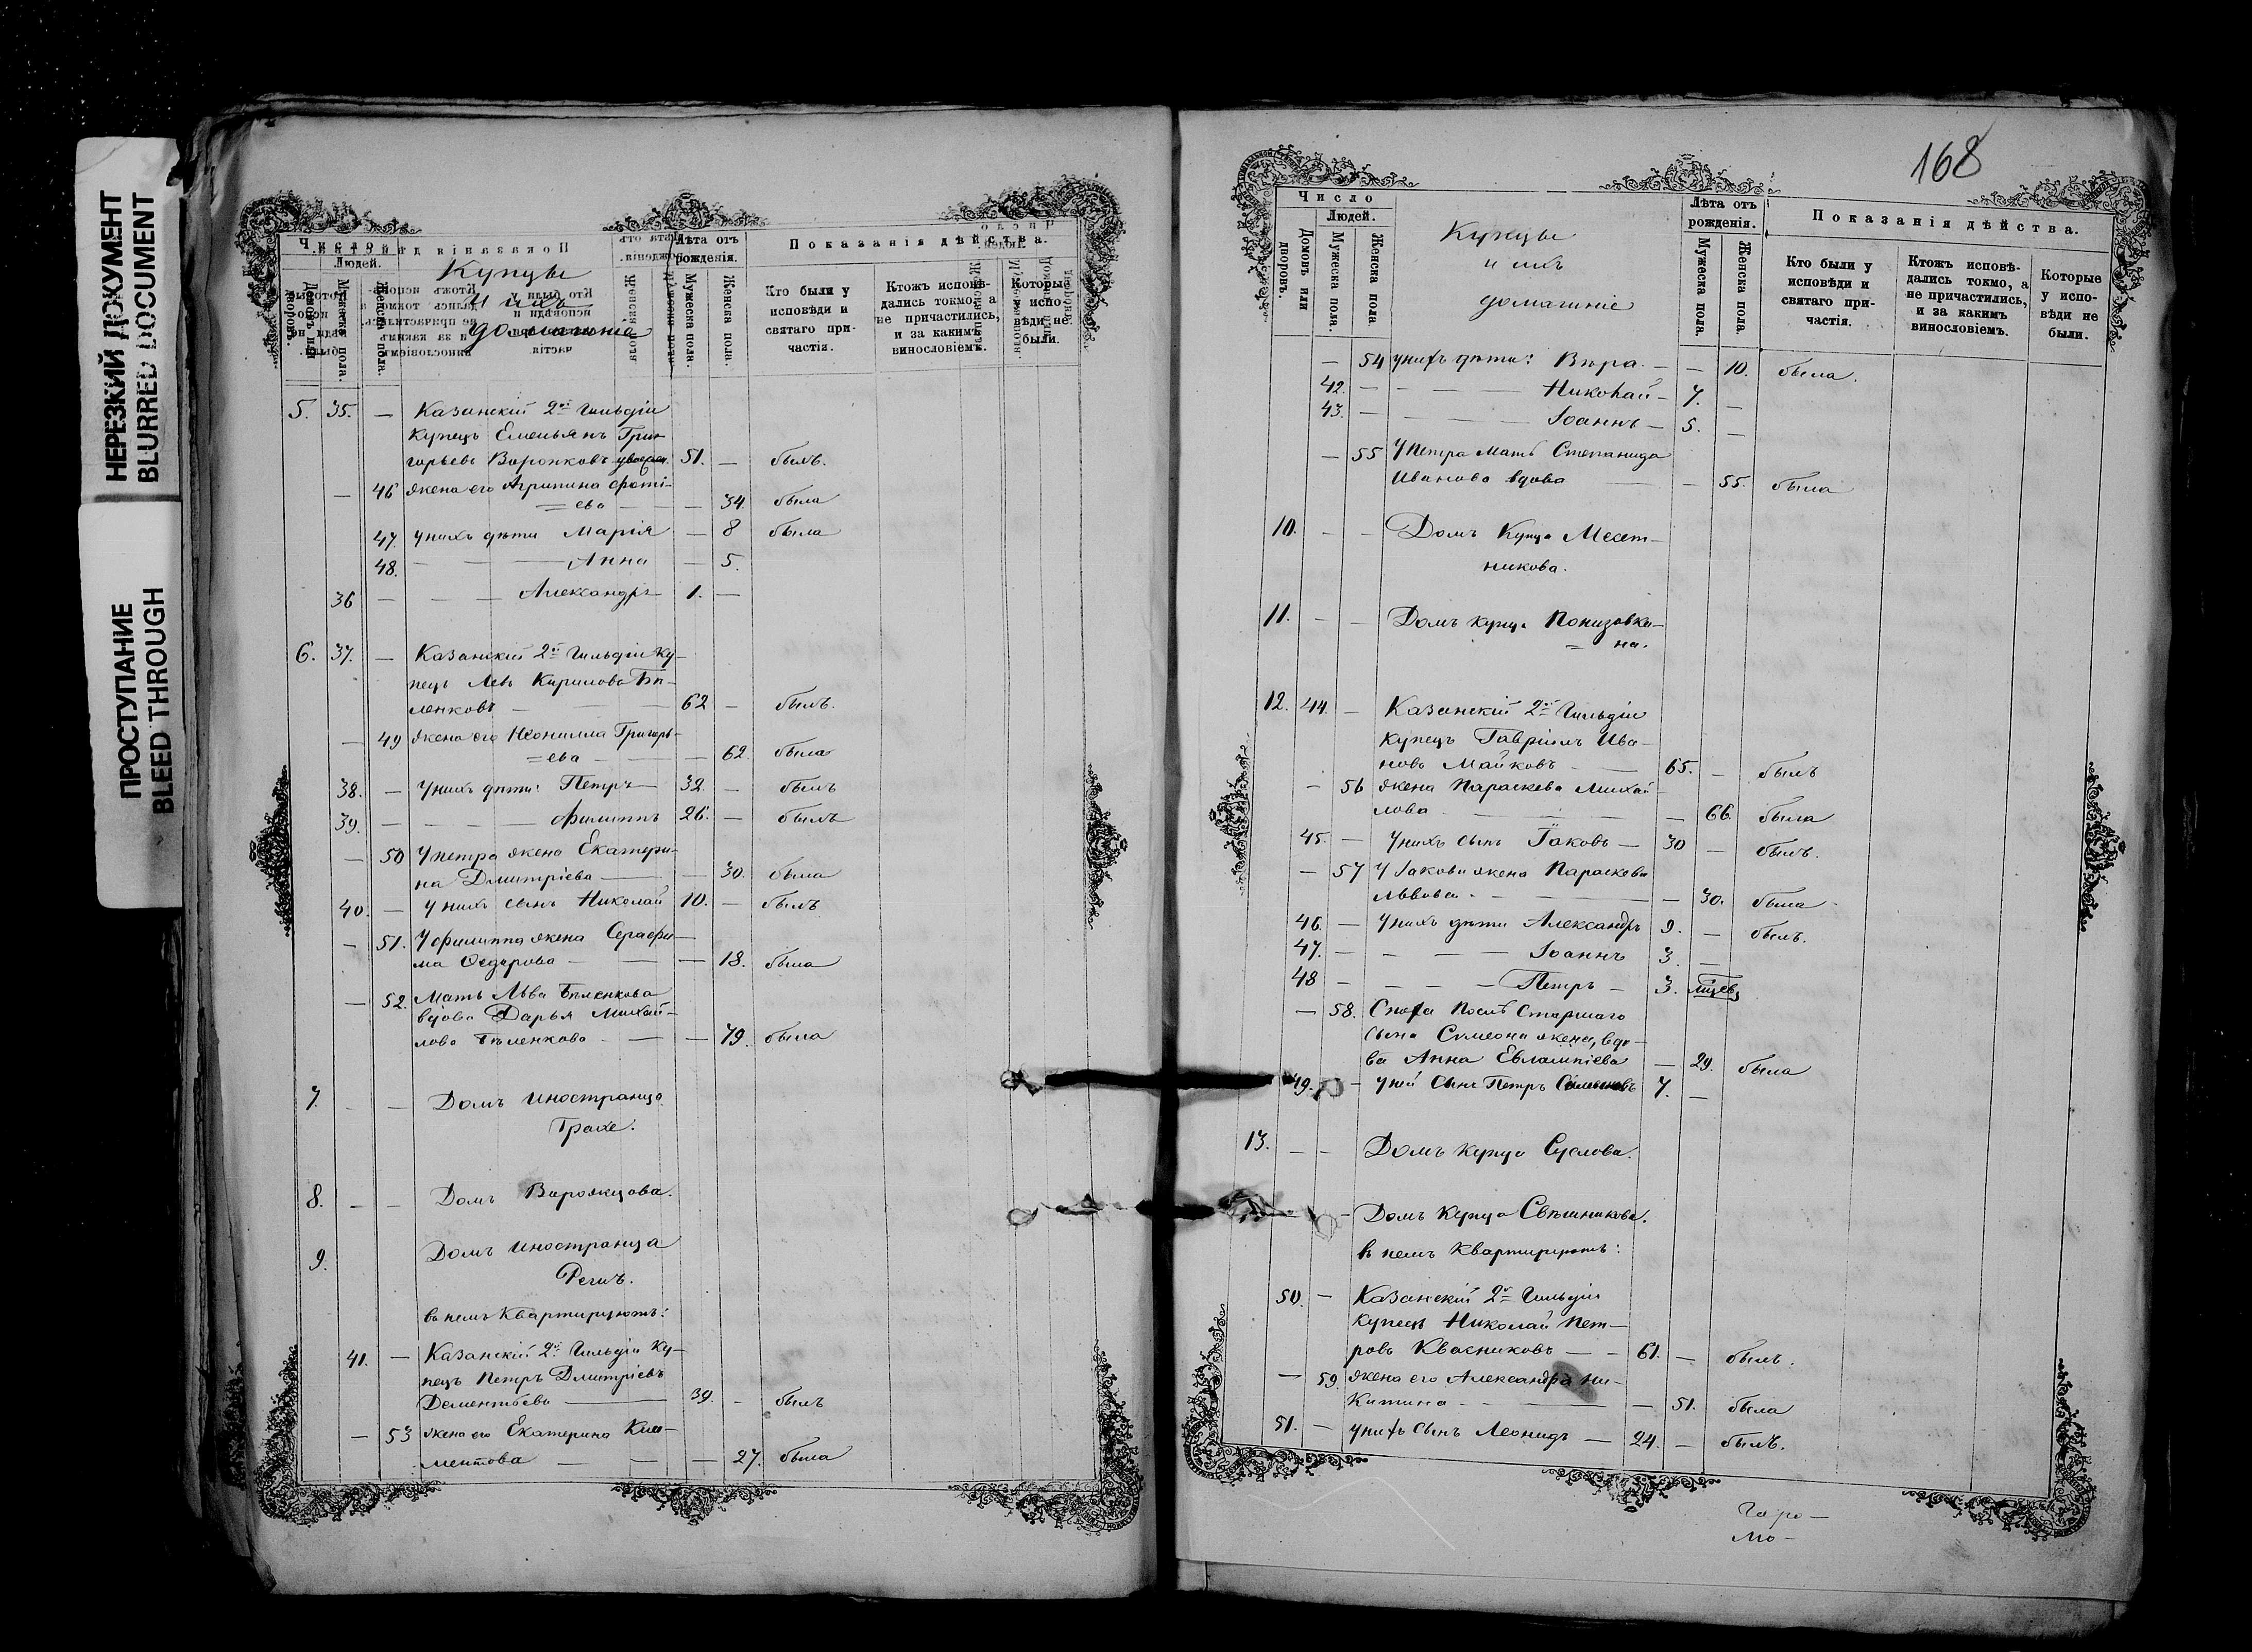 НЕРЕЗКИЙ ДОКУМЕНТ
BLURRED DOCUMENT
ПРОСТУПАНИЕ
BLEED THROUGH
Число
Людей.
Домовъ или дворовъ.
Мужеска пола.
Женска пола.
Купцы
и ихъ
домашніе
Лѣта отъ рожденія.
Мужеска пола.
Женска пола.
Показанія дѣйства.
Кто были у исповѣди и святаго причастія.
Ктожъ исповѣдались токмо, а не причастились, и за какимъ винословіемъ.
Которые у исповѣди не были.
5. 35. — Казанскій 2й Гильдіи
купецъ Емельянъ Гри-
горьевъ Воронковъ 51. — былъ.
— 46 жена его Агрипина Фоті-
=ева — — — 34. была
47. у нихъ дѣти Марія — 8 была
48. — — — Анна — 5.
36 — — — Александръ 1. —
6. 37. — Казанскій 2й Гильдіи Ку-
пецъ Левъ Кириловъ Бѣ-
ленковъ — — — 62 — былъ.
— 49 жена его Неонилла Григорь-
=ева — — — 62. была
38. — У нихъ дѣти: Петръ — 32. — былъ
39. — — — Филиппъ 26. — былъ
— 50 У Петра жена Екатери-
на Дмитріева — — 30. была
40. — У нихъ сынъ Николай 10. — былъ
— 51. У Филиппа жена Серафи-
ма Федорова — — — 18. была
— 52. Мать Льва Бѣленкова
вдова Дарья Михай-
лова Бѣленкова — — — 79. была
7. — — Домъ Иностранца
Грахе.
8. — — Домъ Ворожцова.
9. Домъ Иностранца
Региъ.
въ немъ Квартируютъ:
41. — Казанскій 2й Гильдіи Ку-
пецъ Петръ Дмитріевъ
Дементьевъ — 39. — былъ
— 53 жена его Екатерина Кли-
ментова — — — 27. была
168
Число
Людей.
Домовъ или дворовъ.
Мужеска пола.
Женска пола.
Купцы
и ихъ
домашніе
Лѣта отъ рожденія.
Мужеска пола.
Женска пола.
Показанія дѣйства.
Кто были у исповѣди и святаго причастія.
Ктожъ исповѣдались токмо, а не причастились, и за какимъ винословіемъ.
Которые у исповѣди не были.
— 54 у нихъ дѣти: Вѣра. — — 10. была.
42. — — — Николай — 7. —
43. — — — Іоаннъ — 5. —
— 55 У Петра Мать Степанида
Иванова вдова — — 55. была
10. — — Домъ Купца Мѣсет-
никова.
11. — — Домъ купца Понизовки-
= на.
12. 44. — Казанскій 2й Гильдіи
купецъ Гавріилъ Ива-
новъ Майковъ — — 65. — былъ
— 56 жена Параскева Михай-
лова — — — 66. была
45. — У нихъ сынъ Іаковъ — 30 — былъ.
— 57 У Іакова жена Параскева
Львова — — — 30. была
46. — У нихъ дѣти Александръ 9. — былъ.
47. — — — Іоаннъ 3. —
48 — — — Петръ — 3. мѣсяц
— 58. Сноха Послѣ Старшаго
сына Симеона жена, вдо-
ва Анна Евлампіева — 29. была
49. — У ней сынъ Петръ Семеновъ 7. —
13. — — Домъ купца Суслова.
— Домъ Купца Свѣшникова.
въ немъ Квартируютъ:
50. — Казанскій 2й Гильдіи
купецъ Николай Пет-
ровъ Квасниковъ — — 61. — былъ.
— 59. жена его Александра Ни-
китина — — — 51. была
51. — у нихъ сынъ Леонидъ — 24. — былъ.